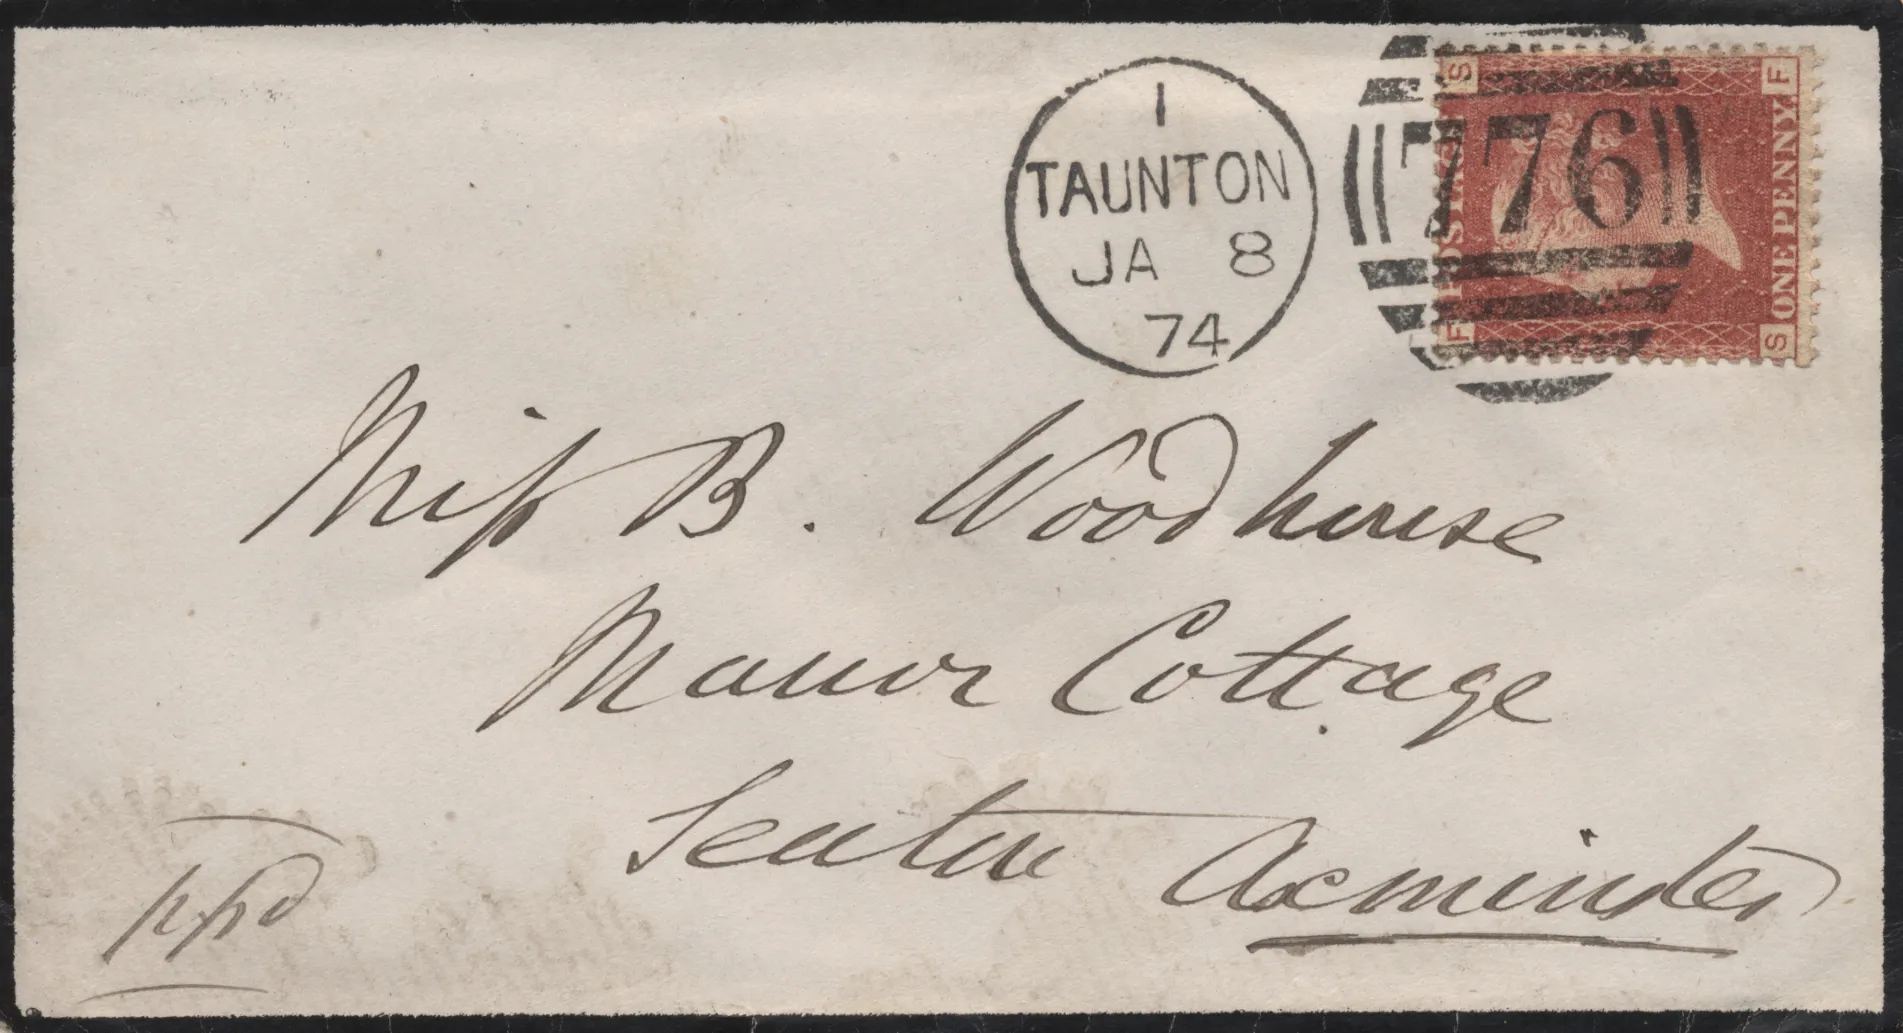 1
TAUNTON
JA 8
74
776
S F
POSTAGE
ONE PENNY.
F S
Miss B. Woodhouse
Manor Cottage
Seaton Axminster
ppd